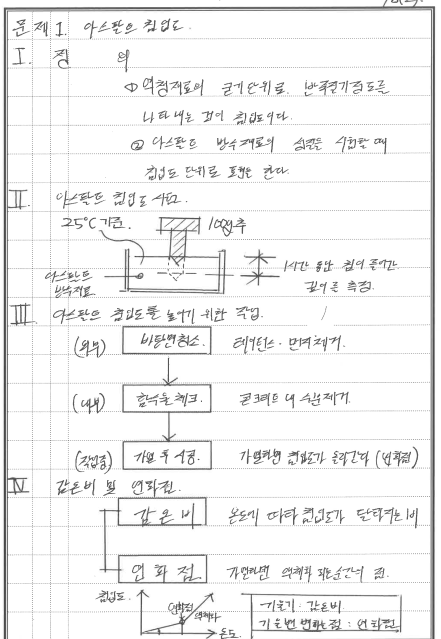 문제 1. 아스팔트 침입도.
I. 정 의
① 역청재료의 굳기단위로. 반복굳기정도를
나타내는 것이 침입도이다.
② 아스팔트 방수재료의 성질을 시험할 때
침입도 단위로 표현을 한다.
II. 아스팔트 침입도 시험.
25℃ 기준. 100g 추
아스팔트 방수재료
1시간 동안 침이 들어간
깊이를 측정.
III. 아스팔트 침입도를 높이기 위한 작업.
(외부) 바탕면청소. 레이턴스. 먼지제거.
(내부) 함수율 체크. 콘크리트 내 수분제거.
(작업중) 가열 후 시공. 가열하면 침입도가 올라간다 (연화점)
IV 감온비 및 연화점.
감온비 온도에 따라 침입도가 달라지는 비
연화점 가열하면 액체화 되는순간의 점.
침입도.
연화점
액체화
온도.
기울기 : 감온비.
기울변 변화는점 : 연화점